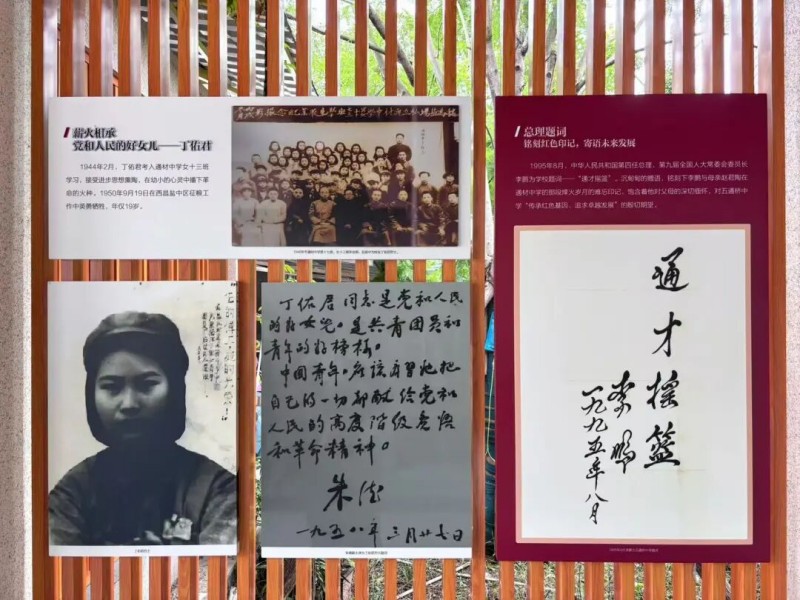 薪火相承
党和人民的好女儿——丁佑君
1944年2月，丁佑君考入通材中学女十三班
学习，接受进步思想熏陶，在幼小的心灵中播下革
命的火种。1950年9月19日在西昌盐中区征粮工
作中英勇牺牲，年仅19岁。
丁佑君同志是党和人民
的好女儿。是共青团员和
青年的好榜样。
中国青年。应该学习她把
自己的一切都献给党和
人民的高度阶级觉悟
和革命精神。
朱德
一九五八年三月廿七日
总理题词
铭刻红色印记，寄语未来发展
1995年8月，中华人民共和国第四任总理、第九届全国人大常委会委员长
李鹏为学校题词——“通才摇篮”。沉甸甸的赠语，铭刻下李鹏与母亲赵君陶在
通材中学的那段烽火岁月的难忘印记，饱含着他对父母的深切缅怀，对五通桥中
学“传承红色基因、追求卓越发展”的殷切期望。
通才摇篮
李鹏
一九九五年八月